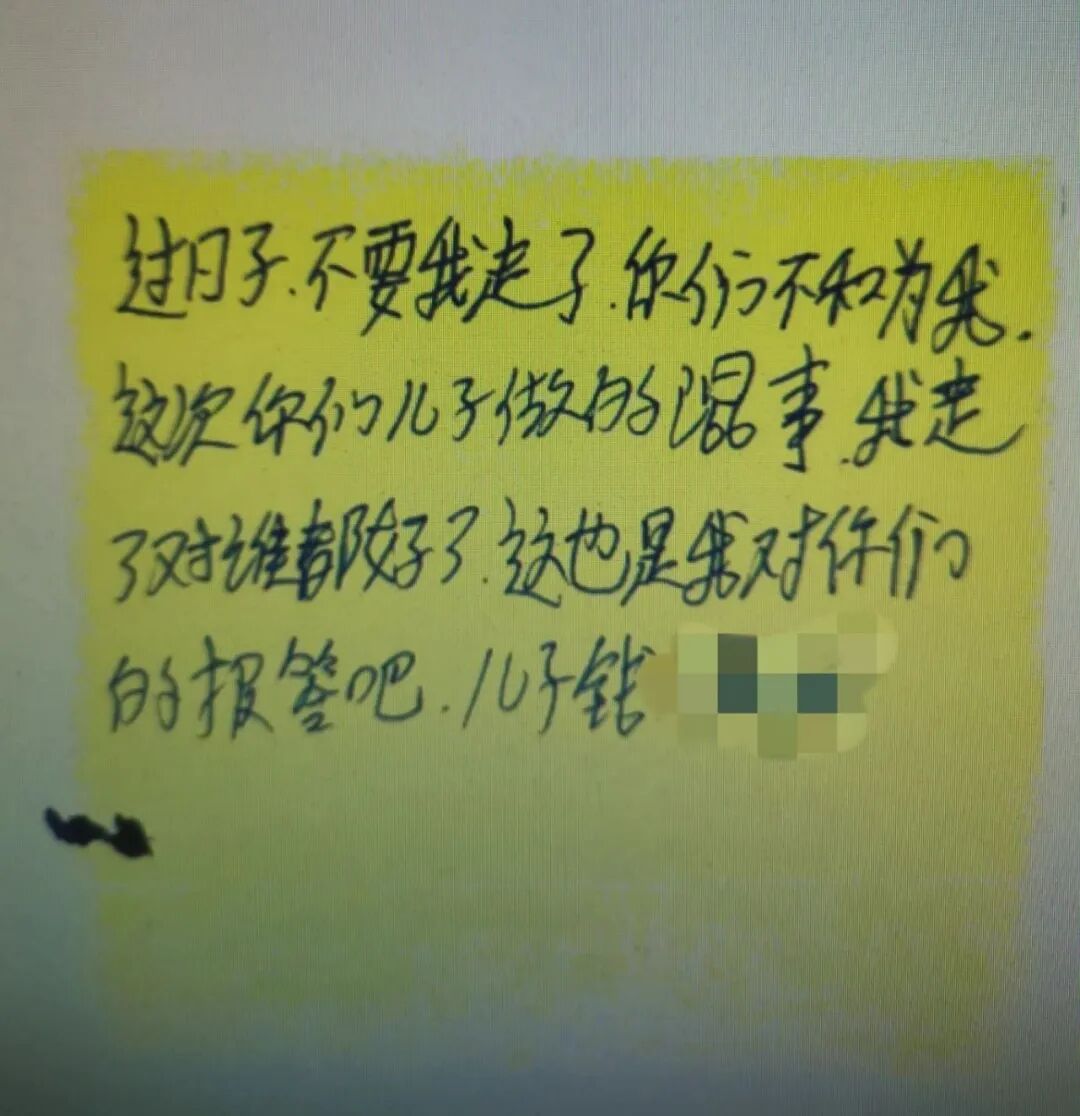 过日子.不要我走了.你们不和为我.
这次你们儿子做的混事.我走
了对谁都好了.这也是我对你们
的报答吧.儿子钱